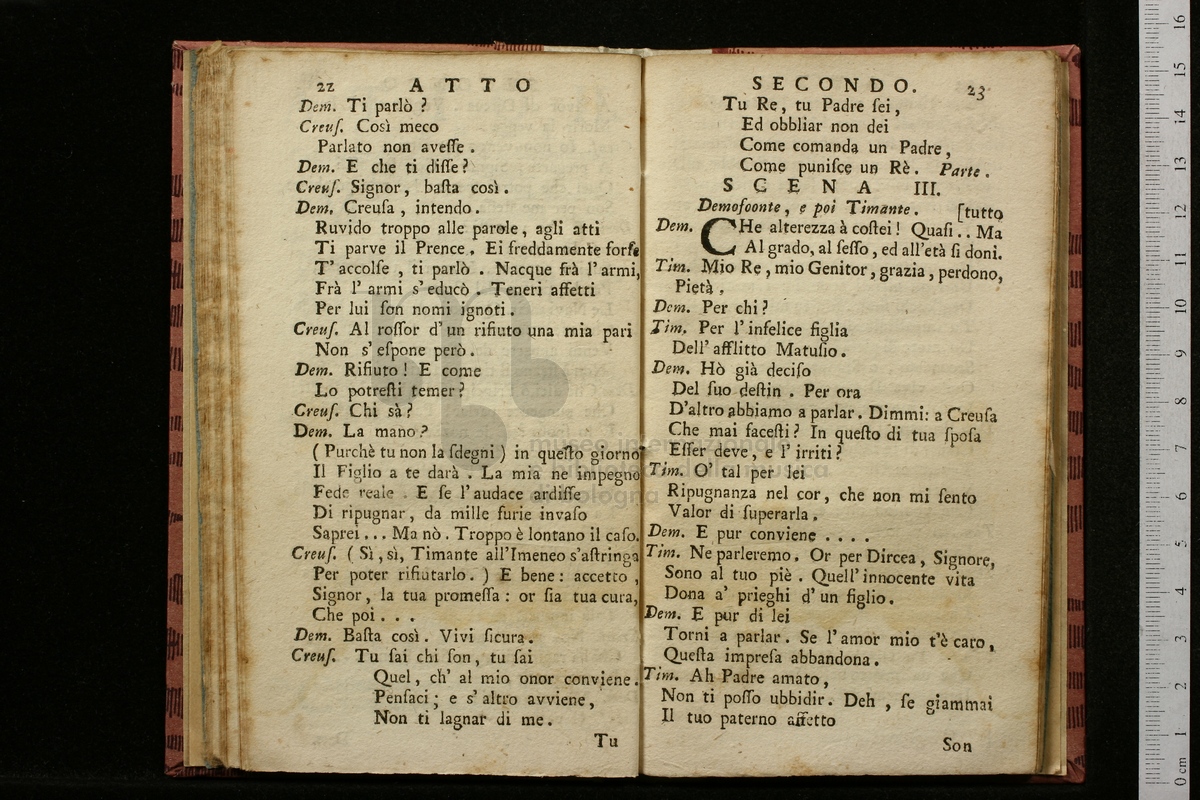 22 ATTO
Dem. Ti parlò ?
Creuſ. Così meco
Parlato non aveſſe .
Dem. E che ti diſſe ?
Creuſ. Signor, baſta così .
Dem. Creuſa , intendo .
Ruvido troppo alle parole, agli atti
Ti parve il Prence . Ei freddamente forſe
T' accolſe , ti parlò . Nacque frà l' armi,
Frà l' armi s' educò . Teneri affetti
Per lui ſon nomi ignoti .
Creuſ. Al roſſor d' un rifiuto una mia pari
Non s' eſpone però .
Dem. Rifiuto ! E come
Lo potreſti temer ?
Creuſ. Chi sà ?
Dem. La mano ?
( Purchè tu non la ſdegni ) in queſto giorno
Il Figlio a te darà . La mia ne impegno
Fede reale . E ſe l' audace ardiſſe
Di ripugnar, da mille furie invaſo
Saprei ... Ma nò . Troppo è lontano il caſo.
Creuſ. ( Sì, sì, Timante all'Imeneo s'aſtringa
Per poter rifiutarlo . ) E bene : accetto ,
Signor, la tua promeſſa : or ſia tua cura,
Che poi . . .
Dem. Baſta così . Vivi ſicura .
Creuſ. Tu ſai chi ſon, tu ſai
Quel, ch' al mio onor conviene .
Penſaci ; e s' altro avviene ,
Non ti lagnar di me .
Tu
SECONDO. 23
Tu Re, tu Padre ſei ,
Ed obbliar non dei
Come comanda un Padre ,
Come puniſce un Rè . Parte .
SCENA III.
Demofoonte, e poi Timante . [tutto
Dem. CHe alterezza à coſtei ! Quaſi .. Ma
Al grado, al ſeſſo, ed all'età ſi doni.
Tim. Mio Re, mio Genitor, grazia, perdono,
Pietà .
Dem. Per chi ?
Tim. Per l' infelice figlia
Dell' afflitto Matuſio .
Dem. Hò già deciſo
Del ſuo deſtin . Per ora
D'altro abbiamo a parlar . Dimmi : a Creuſa
Che mai faceſti ? In queſto di tua ſpoſa
Eſſer deve, e l' irriti ?
Tim. O' tal per lei
Ripugnanza nel cor, che non mi ſento
Valor di ſuperarla .
Dem. E pur conviene . . . .
Tim. Ne parleremo . Or per Dircea, Signore,
Sono al tuo piè . Quell' innocente vita
Dona a' prieghi d' un figlio .
Dem. E pur di lei
Torni a parlar . Se l' amor mio t'è caro,
Queſta impreſa abbandona .
Tim. Ah Padre amato,
Non ti poſſo ubbidir . Deh , ſe giammai
Il tuo paterno affetto
Son
museo internazionale
e biblioteca della musica
di bologna
0 cm 1 2 3 4 5 6 7 8 9 10 11 12 13 14 15 16